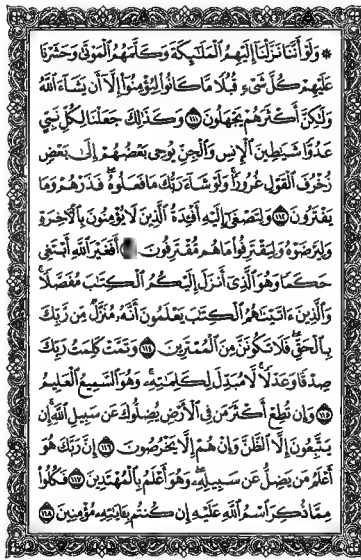 ۞ وَلَوْ أَنَّنَا نَزَّلْنَا إِلَيْهِمُ الْمَلَـٰٓئِكَةَ وَكَلَّمَهُمُ الْمَوْتَىٰ وَحَشَرْنَا
عَلَيْهِمْ كُلَّ شَىْءٍ قُبُلًا مَّا كَانُوا لِيُؤْمِنُوٓا إِلَّآ أَن يَشَآءَ اللَّهُ
وَلَـٰكِنَّ أَكْثَرَهُمْ يَجْهَلُونَ ١١١ وَكَذَٰلِكَ جَعَلْنَا لِكُلِّ نَبِىٍّ
عَدُوًّا شَيَـٰطِينَ الْإِنسِ وَالْجِنِّ يُوحِى بَعْضُهُمْ إِلَىٰ بَعْضٍ
زُخْرُفَ الْقَوْلِ غُرُورًا ۚ وَلَوْ شَآءَ رَبُّكَ مَا فَعَلُوهُ ۖ فَذَرْهُمْ وَمَا
يَفْتَرُونَ ١١٢ وَلِتَصْغَىٰٓ إِلَيْهِ أَفْـِٔدَةُ الَّذِينَ لَا يُؤْمِنُونَ بِالْـَٔاخِرَةِ
وَلِيَرْضَوْهُ وَلِيَقْتَرِفُوا مَا هُم مُّقْتَرِفُونَ أَفَغَيْرَ اللَّهِ أَبْتَغِى
حَكَمًا وَهُوَ الَّذِىٓ أَنزَلَ إِلَيْكُمُ الْكِتَـٰبَ مُفَصَّلًا ۚ
وَالَّذِينَ ءَاتَيْنَـٰهُمُ الْكِتَـٰبَ يَعْلَمُونَ أَنَّهُۥ مُنَزَّلٌ مِّن رَّبِّكَ
بِالْحَقِّ ۖ فَلَا تَكُونَنَّ مِنَ الْمُمْتَرِينَ ١١٤ وَتَمَّتْ كَلِمَتُ رَبِّكَ
صِدْقًا وَعَدْلًا ۚ لَّا مُبَدِّلَ لِكَلِمَـٰتِهِۦ ۚ وَهُوَ السَّمِيعُ الْعَلِيمُ
١١٥ وَإِن تُطِعْ أَكْثَرَ مَن فِى الْأَرْضِ يُضِلُّوكَ عَن سَبِيلِ اللَّهِ ۚ إِن
يَتَّبِعُونَ إِلَّا الظَّنَّ وَإِنْ هُمْ إِلَّا يَخْرُصُونَ ١١٦ إِنَّ رَبَّكَ هُوَ
أَعْلَمُ مَن يَضِلُّ عَن سَبِيلِهِۦ ۖ وَهُوَ أَعْلَمُ بِالْمُهْتَدِينَ ١١٧ فَكُلُوا
مِمَّا ذُكِرَ اسْمُ اللَّهِ عَلَيْهِ إِن كُنتُم بِـَٔايَـٰتِهِۦ مُؤْمِنِينَ ١١٨